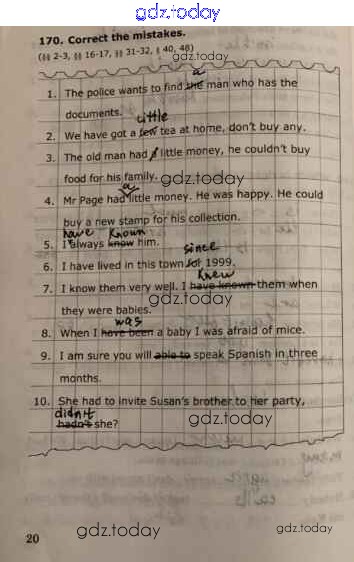 gdz.today
170. Correct the mistakes.
(§§ 2-3, §§ 16-17, §§ 31-32, § 40, 48)
a
1. The police wants to find the man who has the
documents.
little
2. We have got a few tea at home, don't buy any.
3. The old man had a little money, he couldn't buy
food for his family. gdz.today
a
4. Mr Page had little money. He was happy. He could
buy a new stamp for his collection.
have known
5. I always know him.
since
6. I have lived in this town for 1999.
knew
7. I know them very well. I have known them when
they were babies. gdz.today
was
8. When I have been a baby I was afraid of mice.
9. I am sure you will able to speak Spanish in three
months.
10. She had to invite Susan's brother to her party,
didn't
hadn't she? gdz.today
20
gdz.today gdz.today